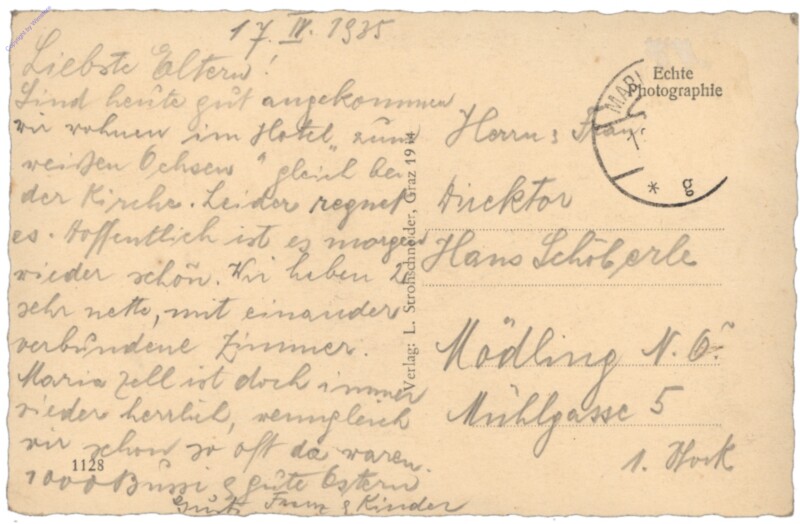 17. IV. 1935
Liebste Eltern!
Sind heute gut angekommen
wir wohnen im Hotel „zum
weißen Ochsen" gleich bei
der Kirche. Leider regnet
es. Hoffentlich ist es morgen
wieder schön. Wir haben 2
sehr nette, mit einander
verbundene Zimmer.
Maria Zell ist doch immer
wieder herrlich, wenngleich
wir schon so oft da waren.
1000 Bussi & gute Ostern
Franz & Kinder
1128
Verlag: L. Strohschneider, Graz 1914
Echte
Photographie
MARI
* g
Herrn & Frau
Direktor
Hans Schöberle
Mödling N. Ö.
Mühlgasse 5
1. Stock
Copyright by